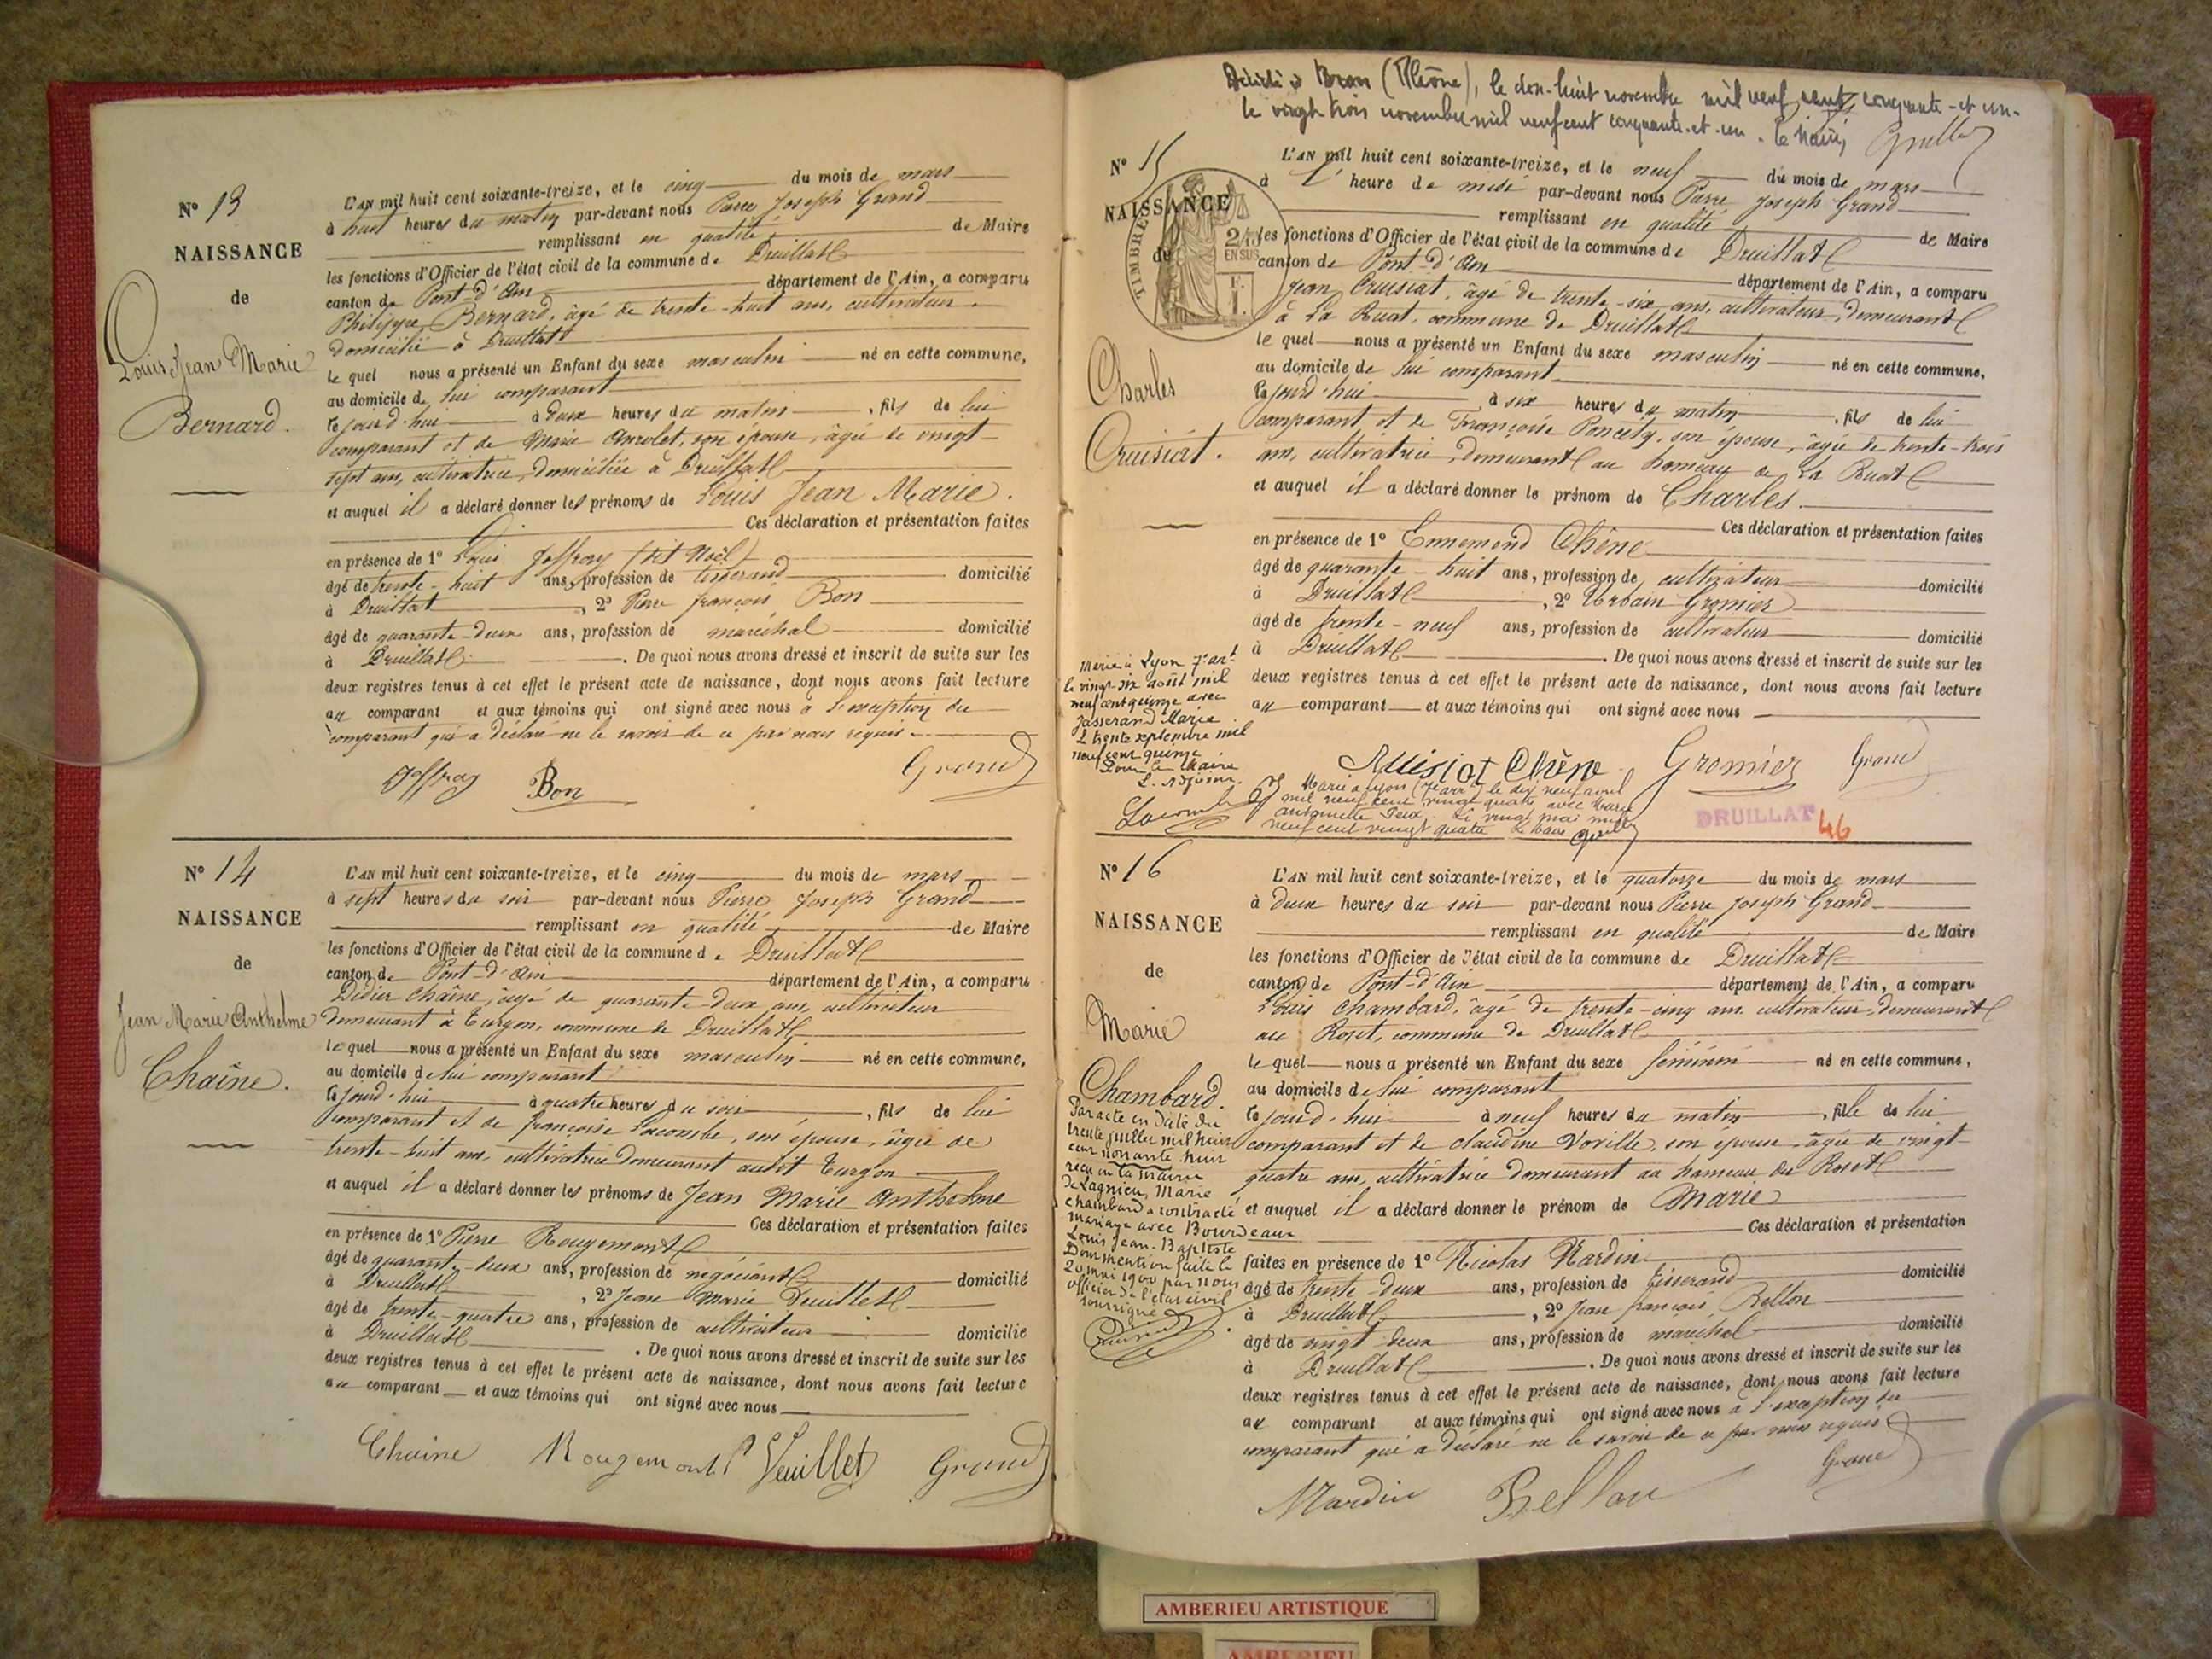 N° 13
NAISSANCE
de
Louis Jean Marie
Bernard.
L'AN mil huit cent soixante-treize, et le cinq du mois de mars
à huit heures du matin par-devant nous Pierre Joseph Grand
remplissant en qualité de Maire
les fonctions d'Officier de l'état civil de la commune de Druillat
canton de Pont-d'Ain département de l'Ain, a comparu
Philippe Bernard, âgé de trente-huit ans, cultivateur
domicilié à Druillat
le quel nous a présenté un Enfant du sexe masculin né en cette commune,
au domicile de lui comparant
cejourd'hui à deux heures du matin, fils de lui
comparant et de Marie son épouse, âgée de vingt-
sept ans, cultivatrice, domiciliée à Druillat
et auquel il a déclaré donner les prénoms de Louis Jean Marie.
Ces déclaration et présentation faites
en présence de 1° Louis Joffray (dit Noël)
âgé de trente-huit ans, profession de tisserand domicilié
à Druillat, 2° Pierre françois Bon
âgé de quarante-deux ans, profession de maréchal domicilié
à Druillat. De quoi nous avons dressé et inscrit de suite sur les
deux registres tenus à cet effet le présent acte de naissance, dont nous avons fait lecture
au comparant et aux témoins qui ont signé avec nous à l'exception du
comparant qui a déclaré ne le savoir de ce par nous requis.
Joffray Bon Grand
N° 14
NAISSANCE
de
Jean Marie Anthelme
Chaîne.
L'AN mil huit cent soixante-treize, et le cinq du mois de mars
à sept heures du soir par-devant nous Pierre Joseph Grand
remplissant en qualité de Maire
les fonctions d'Officier de l'état civil de la commune de Druillat
canton de Pont-d'Ain département de l'Ain, a comparu
Didier Chaîne, âgé de quarante-deux ans, cultivateur
demeurant à Turgon, commune de Druillat
le quel nous a présenté un Enfant du sexe masculin né en cette commune,
au domicile de lui comparant
cejourd'hui à quatre heures du soir, fils de lui
comparant et de françoise Lacombe, son épouse, âgée de
trente-huit ans, cultivatrice demeurant audit Turgon
et auquel il a déclaré donner les prénoms de Jean Marie Anthelme
Ces déclaration et présentation faites
en présence de 1° Pierre Rougemont
âgé de quarante-deux ans, profession de négociant domicilié
à Druillat, 2° Jean Marie Veuillet
âgé de trente-quatre ans, profession de cultivateur domicilié
à Druillat. De quoi nous avons dressé et inscrit de suite sur les
deux registres tenus à cet effet le présent acte de naissance, dont nous avons fait lecture
au comparant et aux témoins qui ont signé avec nous
Chaine Rougemont Veuillet Grand
Décédé à Bron (Rhône), le dix-huit novembre mil neuf cent cinquante-et-un.
le vingt trois novembre mil neuf cent cinquante-et-un. Le Maire,
N° 15
NAISSANCE
de
TIMBRE
2/10
EN SUS
F.
1
Charles
Cruisiat.
L'AN mil huit cent soixante-treize, et le neuf du mois de mars
à l' heure de midi par-devant nous Pierre Joseph Grand
remplissant en qualité de Maire
les fonctions d'Officier de l'état civil de la commune de Druillat
canton de Pont-d'Ain département de l'Ain, a comparu
Jean Cruisiat, âgé de trente-six ans, cultivateur, demeurant
à La Ruat, commune de Druillat
le quel nous a présenté un Enfant du sexe masculin né en cette commune,
au domicile de lui comparant
cejourd'hui à six heures du matin, fils de lui
comparant et de Françoise Poncety, son épouse, âgée de trente-trois
ans, cultivatrice, demeurant au hameau de La Ruat
et auquel il a déclaré donner le prénom de Charles.
Ces déclaration et présentation faites
en présence de 1° Ennemond Chêne
âgé de quarante-huit ans, profession de cultivateur domicilié
à Druillat, 2° Urbain Gromier
âgé de trente-neuf ans, profession de cultivateur domicilié
à Druillat. De quoi nous avons dressé et inscrit de suite sur les
deux registres tenus à cet effet le présent acte de naissance, dont nous avons fait lecture
au comparant et aux témoins qui ont signé avec nous
Cruisiat Chêne Gromier Grand
Marié à Lyon 7e arrt
le vingt six août mil
neuf cent quinze avec
Jasserand Marie.
Le trente septembre mil
neuf cent quinze
Pour le Maire
L'Adjoint.
Marié à Lyon (7e arrt) le dix neuf avril
mil neuf cent vingt quatre avec Marie
antoinette Le vingt mai mil
neuf cent vingt quatre Le Maire
DRUILLAT 46
N° 16
NAISSANCE
de
Marie
Chambard.
L'AN mil huit cent soixante-treize, et le quatorze du mois de mars
à deux heures du soir par-devant nous Pierre Joseph Grand
remplissant en qualité de Maire
les fonctions d'Officier de l'état civil de la commune de Druillat
canton de Pont-d'Ain département de l'Ain, a comparu
Louis Chambard, âgé de trente-cinq ans, cultivateur, demeurant
au Roset, commune de Druillat
le quel nous a présenté un Enfant du sexe féminin né en cette commune,
au domicile de lui comparant
cejourd'hui à neuf heures du matin, fille de lui
comparant et de claudine son épouse, âgée de vingt-
quatre ans, cultivatrice demeurant au hameau du Roset
et auquel il a déclaré donner le prénom de Marie
Ces déclaration et présentation
faites en présence de 1° Nicolas Nardin
âgé de trente-deux ans, profession de tisserand domicilié
à Druillat, 2° Jean françois Bellon
âgé de vingt-deux ans, profession de maréchal domicilié
à Druillat. De quoi nous avons dressé et inscrit de suite sur les
deux registres tenus à cet effet le présent acte de naissance, dont nous avons fait lecture
au comparant et aux témoins qui ont signé avec nous à l'exception du
comparant qui a déclaré ne le savoir de ce par nous requis
Nardin Bellon Grand
Par acte en date du
trente juillet mil huit
cent nonante huit
reçu en la mairie
de Lagnieu, Marie
Chambard a contracté
mariage avec Bourdeaux
Louis Jean-Baptiste
Dont mention faite le
20 mai 1900 par nous
officier de l'état civil
soussigné
AMBERIEU ARTISTIQUE
AMBERIEU